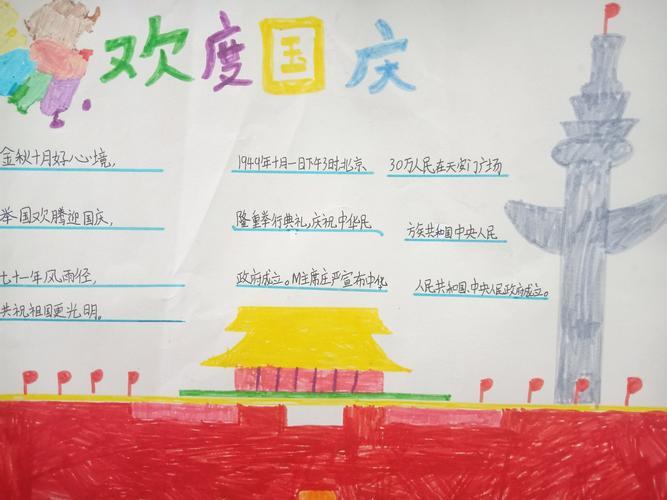 欢度国庆
金秋十月好心境,
举国欢腾迎国庆,
七十一年风雨径,
共祝祖国更光明。
1949年十月一日下午3时北京
30万人民在天安门广场
隆重举行典礼,庆祝中华民
方矣共和国中央人民
政府成立。M主席庄严宣布中华
人民共和国、中央人民政府成立。